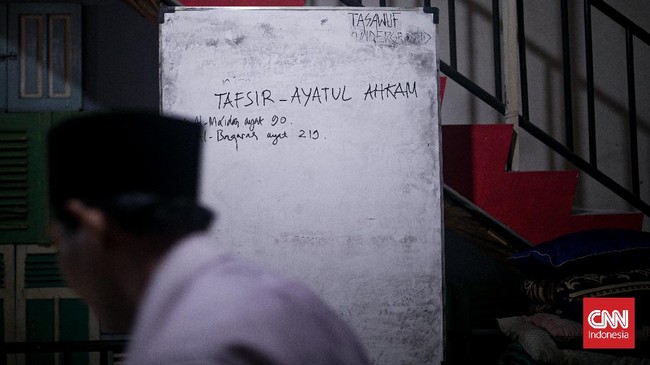 TASAWUF
UNDERGROUND
TAFSIR - AYATUL AHKAM
Al-Maidah ayat 90.
Al-Baqarah ayat 219.
CNN
Indonesia